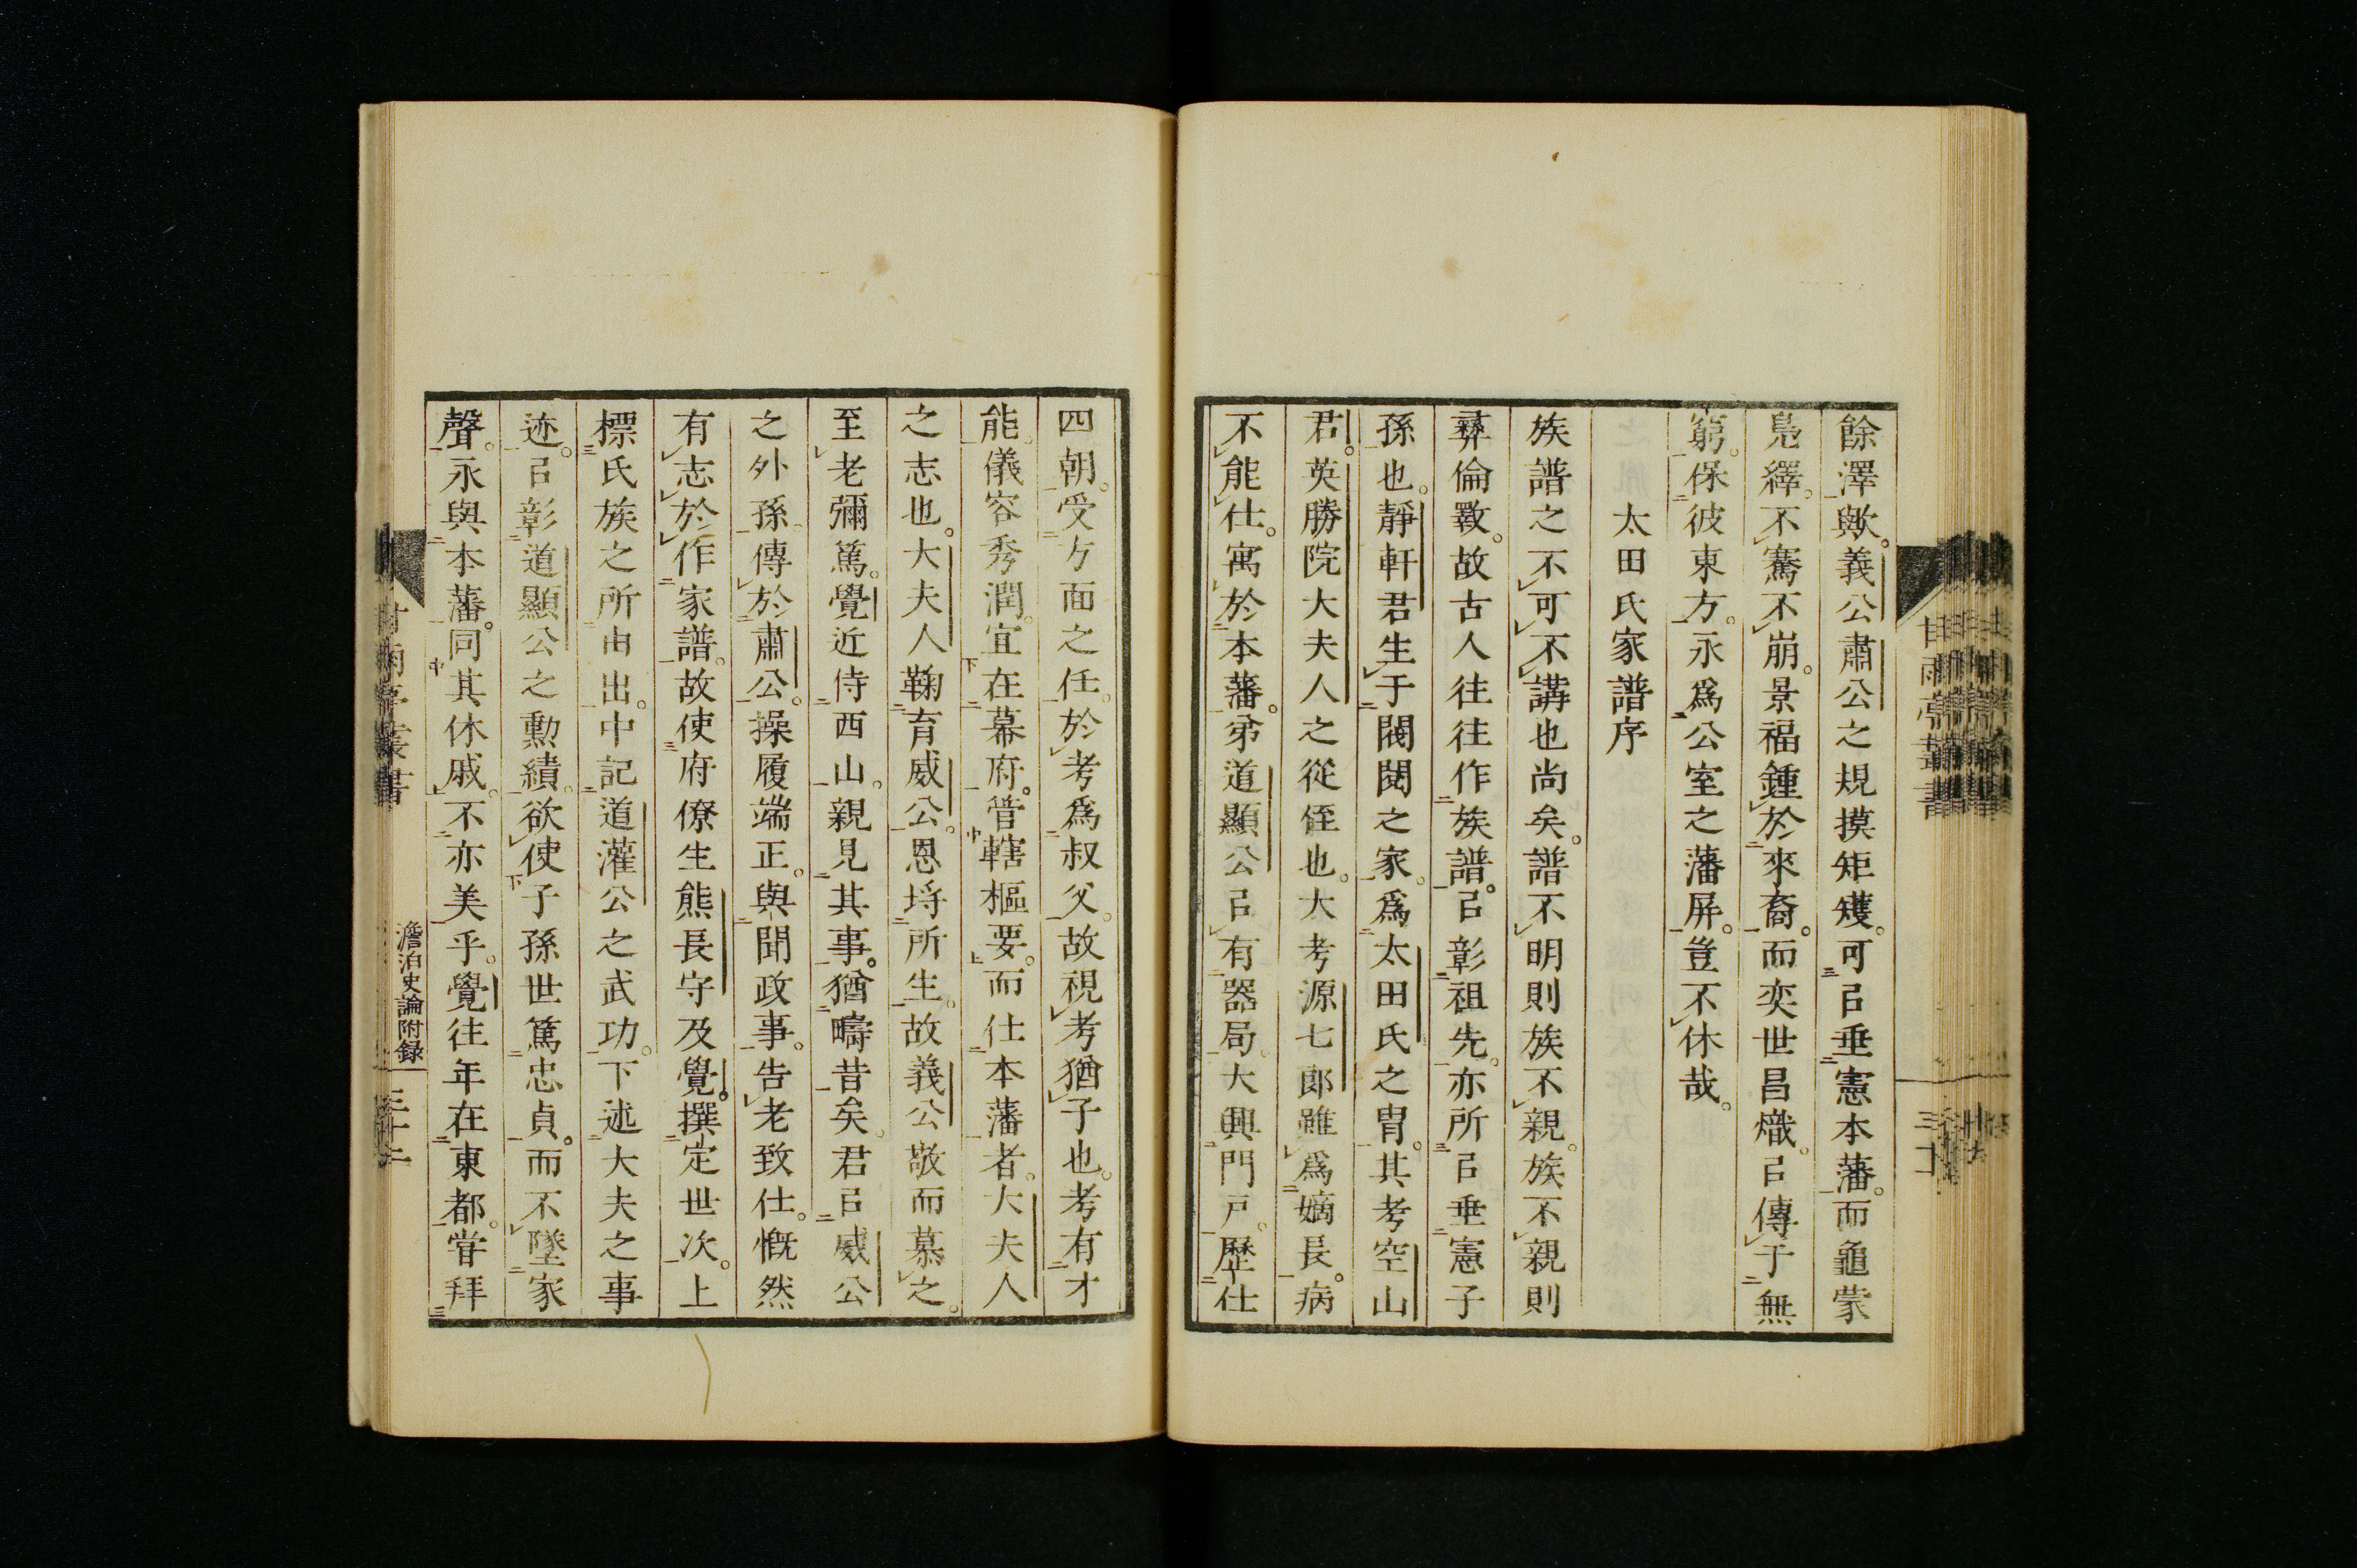 餘澤歟。義公肅公之規摸矩矱。可㠯垂憲本藩。而龜蒙
鳧繹。不騫不崩。景福鍾於來裔。而奕世昌熾。㠯傳于無
窮。保彼東方。永爲公室之藩屏。豈不休哉。
太田氏家譜序
族譜之不可不講也尚矣。譜不明則族不親。族不親則
彝倫斁。故古人往往作族譜。㠯彰祖先。亦所㠯垂憲子
孫也。靜軒君生于閥閱之家。爲太田氏之冑。其考空山
君。英勝院大夫人之從侄也。大考源七郎雖爲嫡長。病
不能仕。寓於本藩。弟道顯公㠯有器局。大興門戸。歷仕
四朝。受方面之任。於考爲叔父。故視考猶子也。考有才
能。儀容秀潤。宜在幕府。管轄樞要。而仕本藩者。大夫人
之志也。大夫人鞠育威公。恩埒所生。故義公敬而慕之。
至老彌篤。覺近侍西山。親見其事。猶疇昔矣。君㠯威公
之外孫。傳於肅公。操履端正。與聞政事。告老致仕。慨然
有志於作家譜。故使府僚生熊長守及覺。撰定世次。上
標氏族之所由出。中記道灌公之武功。下述大夫之事
迹。㠯彰道顯公之勳績。欲使子孫世篤忠貞。而不墜家
聲。永與本藩。同其休戚。不亦美乎。覺往年在東都。嘗拜
甘雨亭叢書
澹泊史論附録
三十二